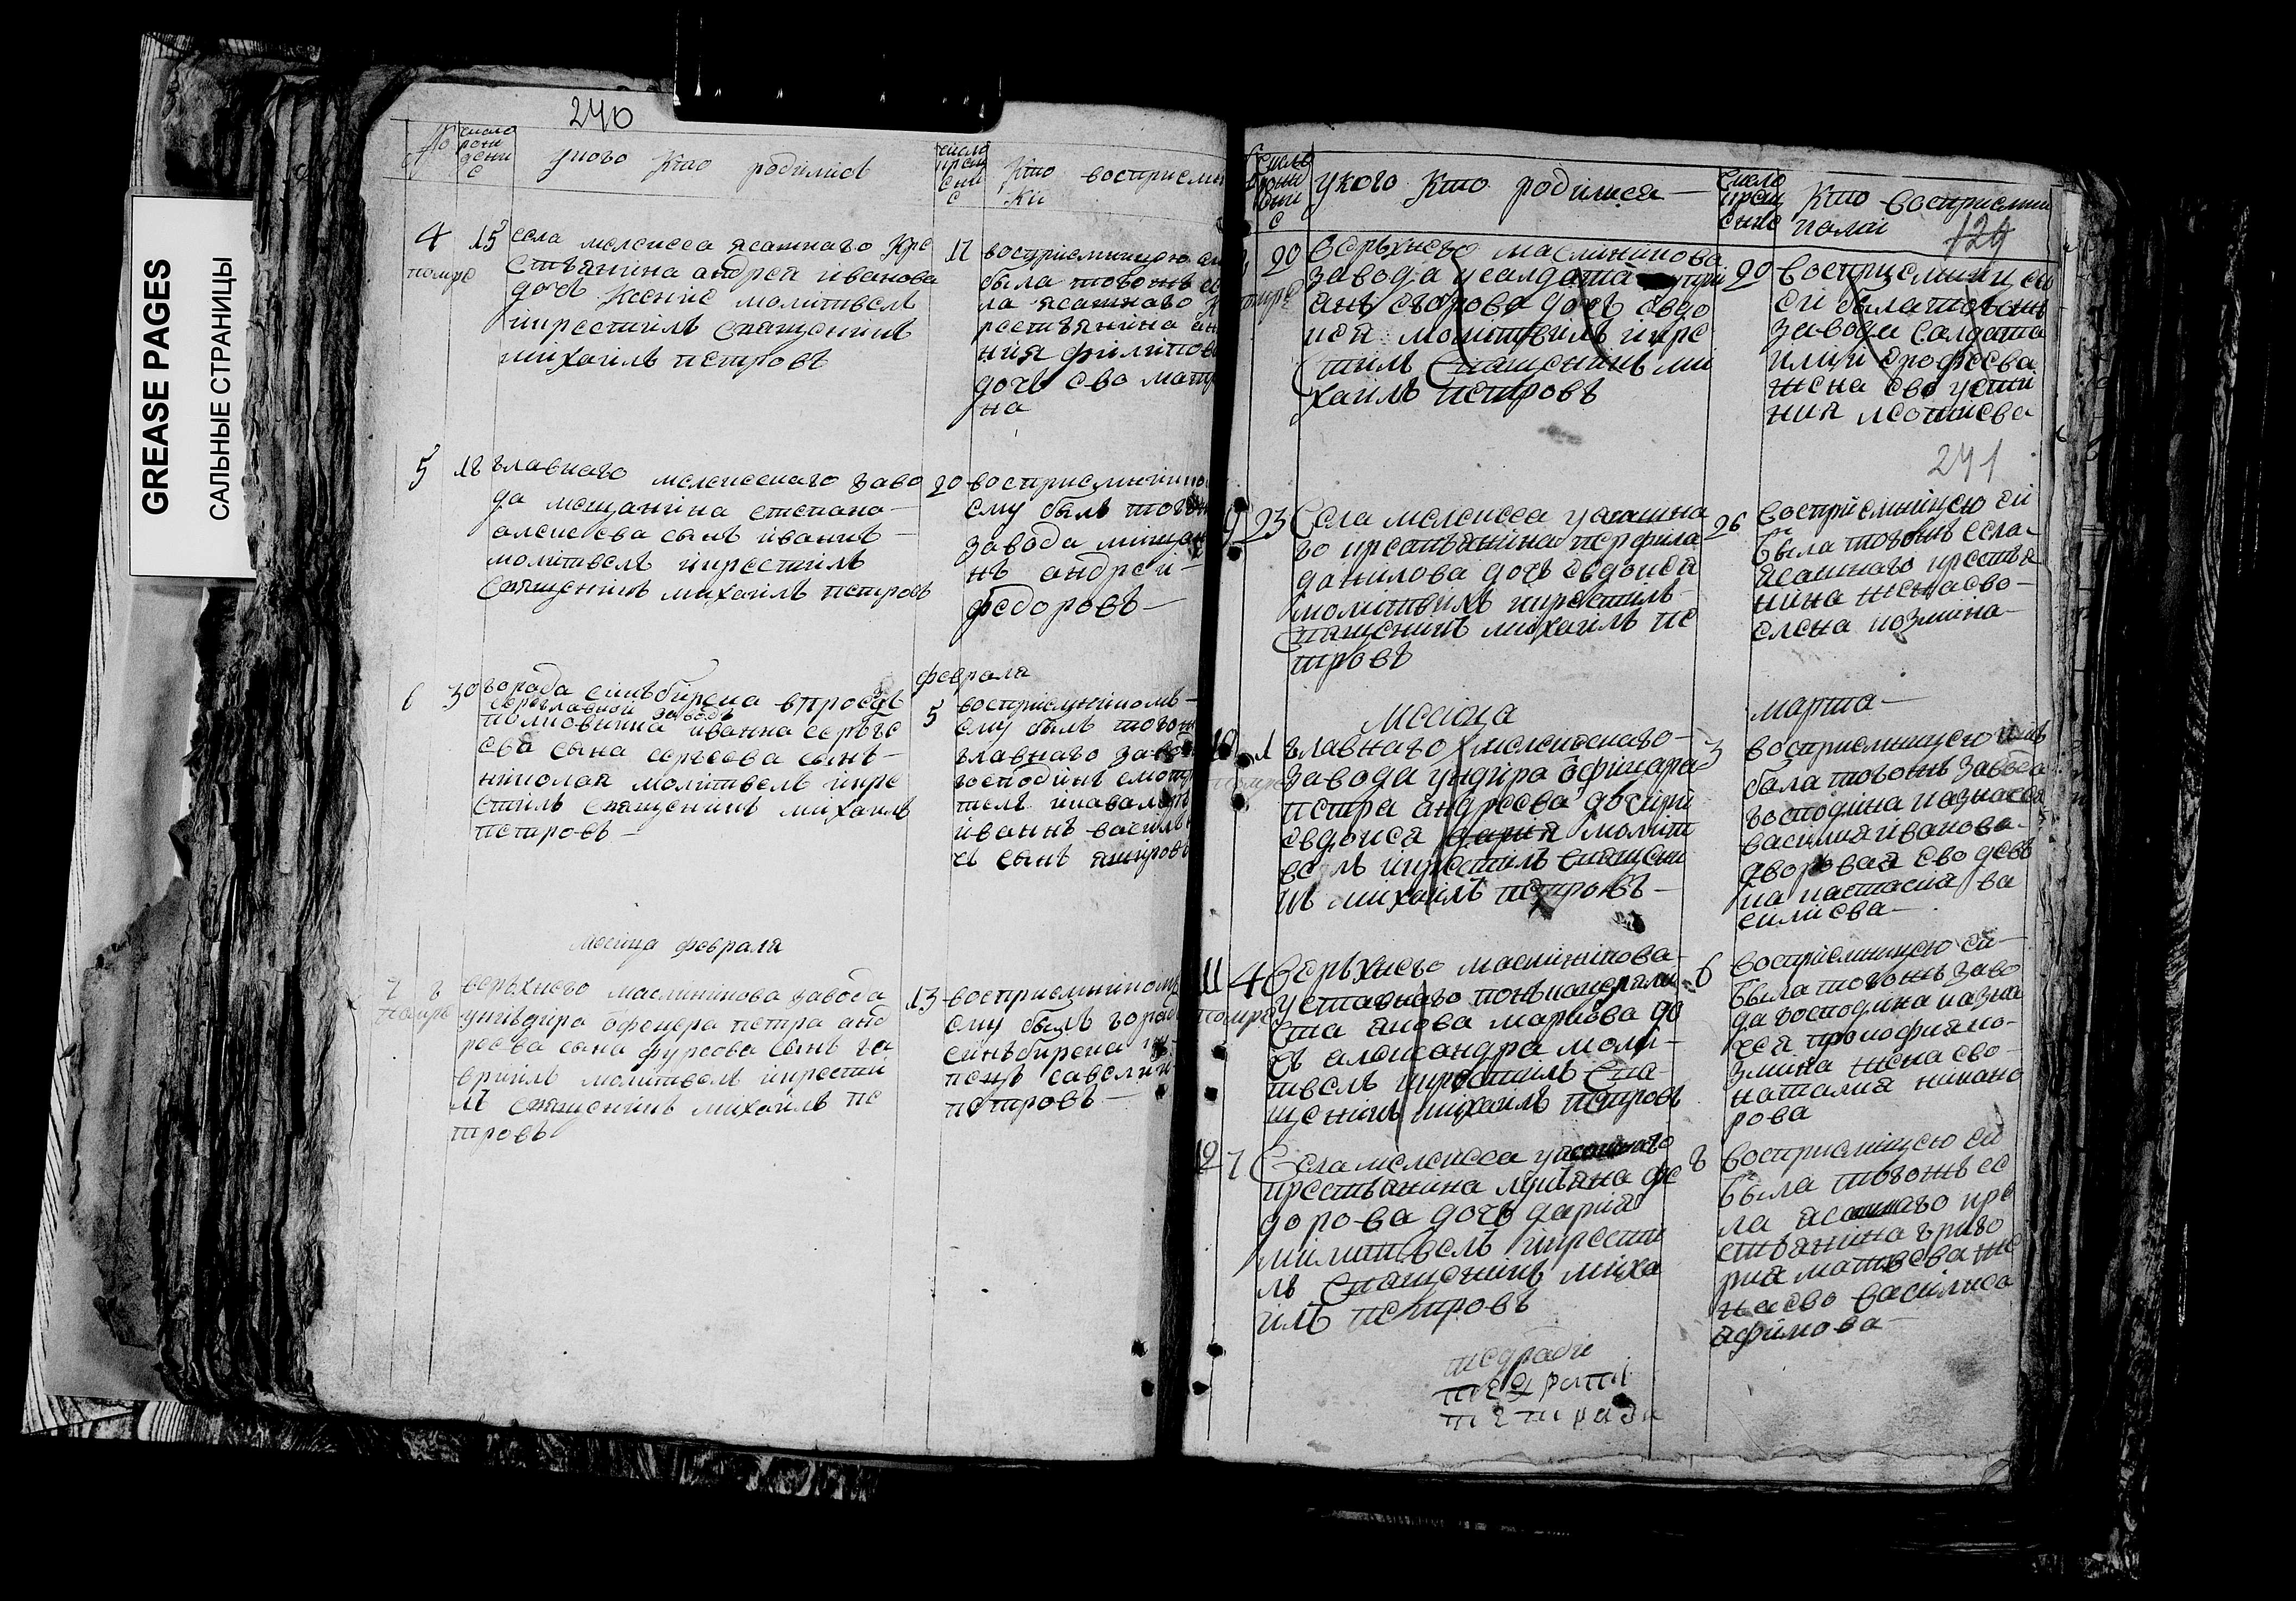 GREASE PAGES
САЛЬНЫЕ СТРАНИЦЫ
240
№
число рождени е
укого кто родились
число креще ние
кто восприемни
ки
4
помере
15
села мелекеса ясашнаго кре
стьянина андрея иванова
дочь ксение молитвел
икрестилъ священникъ
михаилъ петровъ
17
восприемницею
была тогожъ
ла ясашнаго
рестьянина
ния филипов
дочь ево матр
на
5
18
главнаго мелекескаго заво
да мещанина степана
алексеева сынъ иванъ
молитвелъ икрестилъ
священникъ михаилъ петровъ
20
восприемником
ему былъ тогож
завода мещан
нъ андреи
федоровъ
6
30
города синъбирска впроезде
чрезглавной заводъ
полковника иванна сергее
ева сына сергеева сынъ
николай молитвелъ икре
стилъ священникъ михаилъ
петровъ
февраля
5
восприемникомъ
ему былъ тогож
главнаго заво
господинъ смотр
тель
иваннъ василь
чь сынъ
месяца февраля
7
померъ
8
верьхнего масленикова завода
унтеръ афицера петра анд
реева сына фурсова сынъ га
врiилъ молитвелъ икрести
лъ священникъ михаилъ пе
тровъ
13
восприемникомъ
ему былъ город
синъбирска
савелии
петровъ
число рожде ние
укого кто родилися
число креще ние
кто восприемни
124
20
верьхнего масленикова
завода усалдата
янъ егорова дочь евдо
кея молитвилъ икре
стилъ священникъ ми
хаилъ петровъ
20
восприемницею
ей была тогожъ
завода салдата
ерофеева
жена ево усти
ния леонтиева
241
9
23
села мелекеса уясашна
го крестьянина перфила
данилова дочь евдокея
молитвилъ икрестилъ
священникъ михаилъ пе
тровъ
26
восприемницею ей
была тогожъ села
ясашнаго крестья
нина жена ево
елена козмина
месяца
марта
10
1
главнаго мелекескаго
завода ундера афицара
петра андреева дочери
евдокея дария молит
велъ икрестилъ священи
къ михаилъ петровъ
3
восприемницею
была тогожъ завода
господина казначея
василия иванова
дворовая ево девъ
ка настасия ва
силиева
11
помере
4
верьхнего масленикова
яова маркова до
чь александра моли
твелъ икрестилъ свя
щеникъ михаилъ петровъ
6
восприемницею ей
была тогожъ заво
да господина казна
чея прокофия ко
змина жена ево
наталия никано
рова
12
7
села мелекеса уясашнаго
крестьянина лукьяна фе
дорова дочь дария
милитвелъ икрести
лъ священникъ миха
илъ петровъ
8
восприемницею ей
была тогожъ се
ла ясашнаго кре
стьянина григо
рия матвеева же
на ево василиса
афимова
тедради
тетради